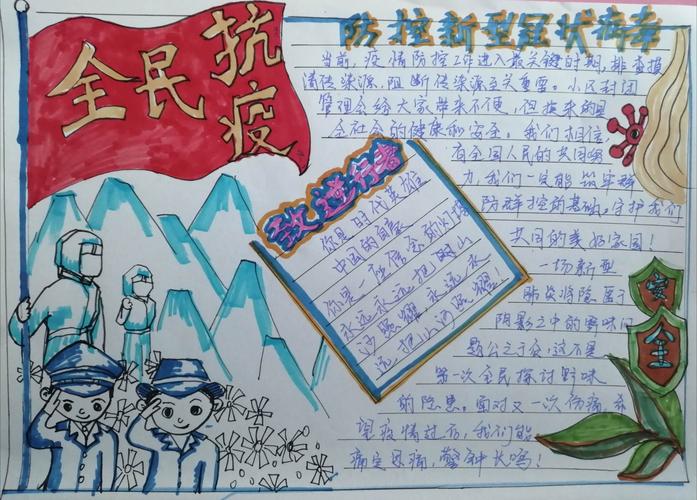 全民抗疫
防控新型冠状病毒
当前,疫情防控工作进入最关键时期,排查摸
清传染源,阻断传染源至关重要。小区封闭
管理会给大家带来不便,但换来的是
全社会的健康和安全。我们相信
有全国人民的共同努
力,我们一定能筑牢群
防群控的基础,守护我们
共同的美好家园!
一场新型
肺炎将隐匿于
阴影之中的野味
公之于众,这不是
第一次全民探讨野味
的隐患。面对又一次伤痛,希
望疫情过后,我们能
痛定思痛,警钟长鸣!
致逆行者
你是时代英雄
中国的自豪
你是一座信念的
永远永远把山
河照耀 永远永
远把山河照耀!
安全